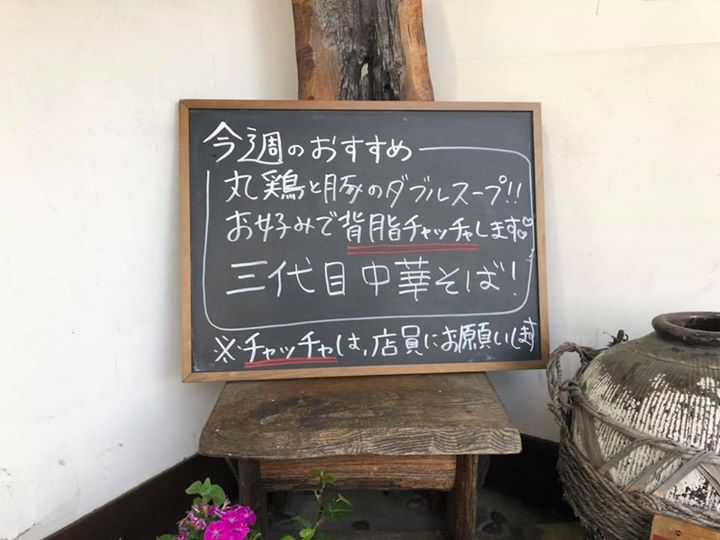 今週のおすすめ
丸鶏と豚のダブルスープ!!
お好みで背脂チャッチャします♡
三代目中華そば!
※チャッチャは、店員にお願いします